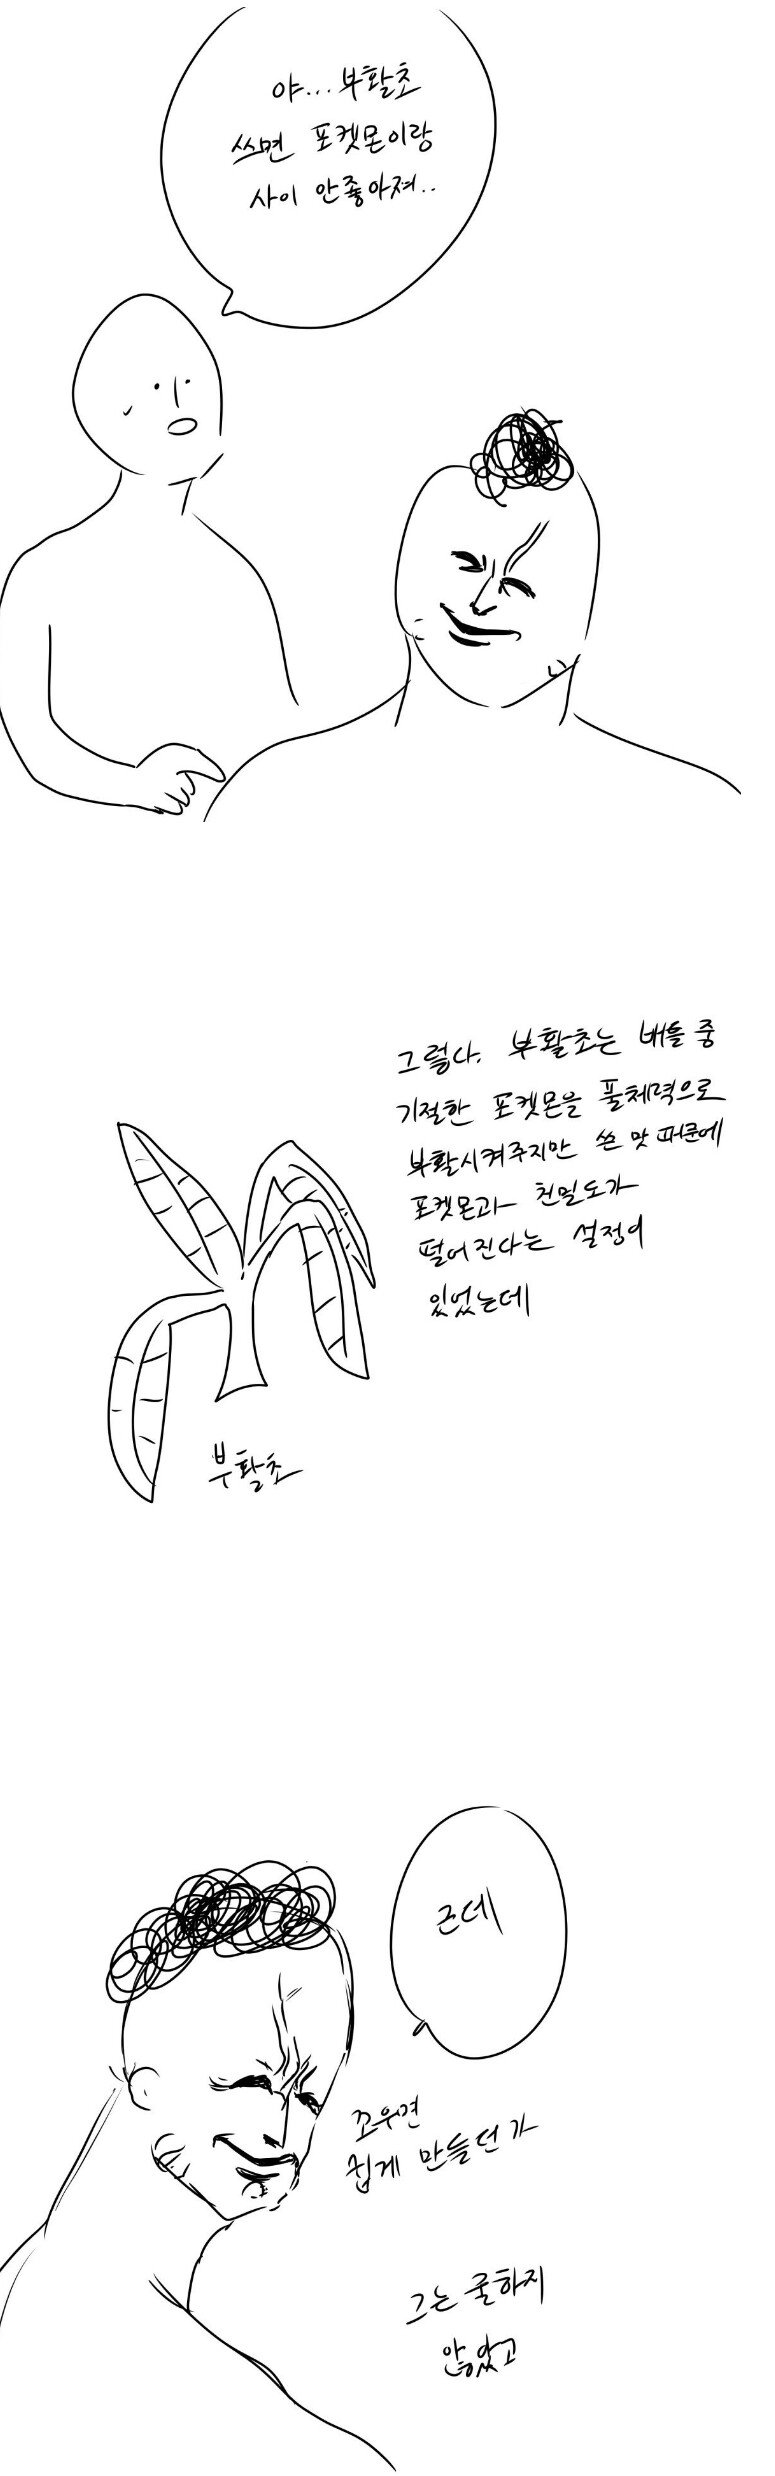 야...부활초
쓰면 포켓몬이랑
사이 안좋아져..
그렇다. 부활초는 배틀 중
기절한 포켓몬을 풀체력으로
부활시켜주지만 쓴 맛 때문에
포켓몬과 친밀도가
떨어진다는 설정이
있었는데
부활초
근데
쉽게 만들던가
그는 굴하지
않았고